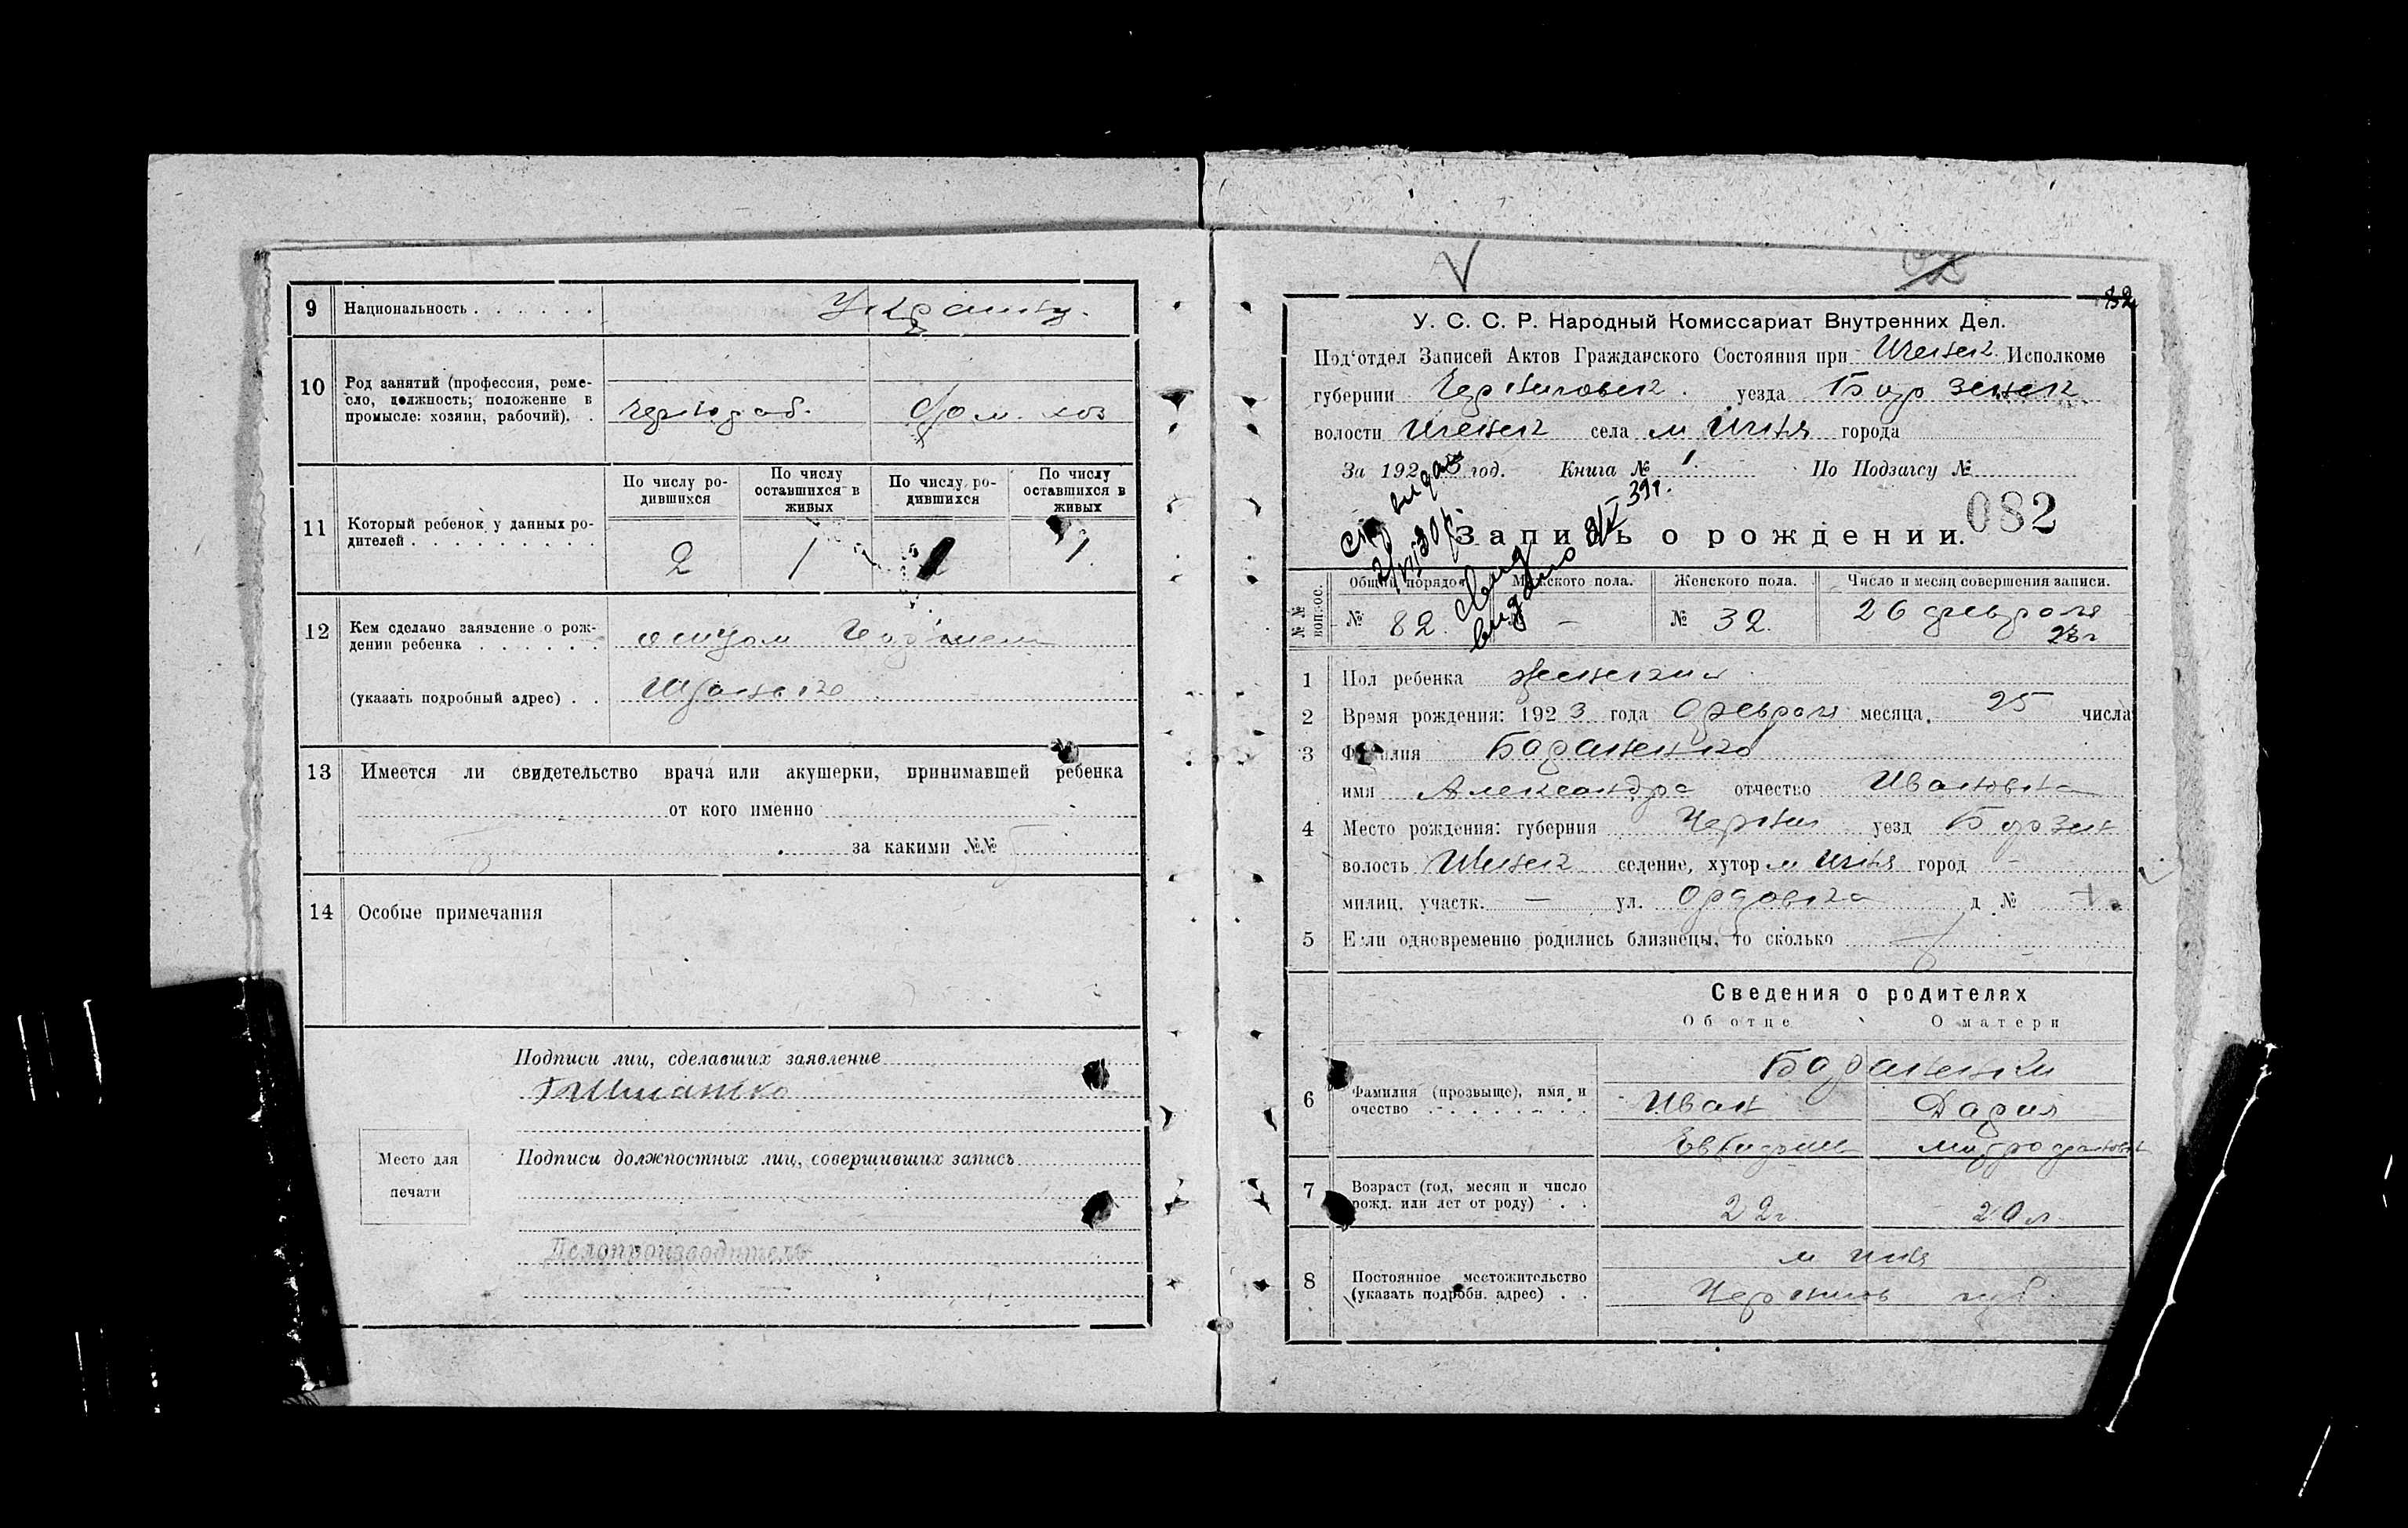 9 Национальность . . . . . . Украинц.
10 Род занятий (профессия, реме-
сло, должность; положение в
промысле: хозяин, рабочий). .
чернораб. дом. хоз
11 Который ребенок у данных ро-
дителей . . . . . . . . . .
По числу ро-
дившихся
По числу
оставшихся в
живых
По числу ро-
дившихся
По числу
оставшихся в
живых
2 1 1
12 Кем сделано заявление о рож-
дении ребенка . . . . . .
(указать подробный адрес) . .
13 Имеется ли свидетельство врача или акушерки, принимавшей ребенка
от кого именно
за какими №№
14 Особые примечания
Подписи лиц, сделавших заявление
Место для
печати
Подписи должностных лиц, совершивших запись
Делопроизводитель
V
82
У. С. С. Р. Народный Комиссариат Внутренних Дел.
Под'отдел Записей Актов Гражданского Состояния при Ичнянск. Исполкоме
губернии Черниговск. уезда Борзенск
волости Ичнянск села м Ичня города
За 1923 год. Книга № 1. По Подзагсу №
082
Запись о рождении.
№№ вопрос.
Общий порядок Мужского пола. Женского пола. Число и месяц совершения записи.
№ 82. — № 32. 26 февраля
23 г
1 Пол ребенка женский
2 Время рождения: 1923 года Февраля месяца. 25 числа
3 Фамилия Бараненко
имя Александра отчество Ивановна
4 Место рождения: губерния Черниг уезд Борзен
волость Ичнянск селение, хутор м Ичня город —
милиц. участк. — ул. д. №
5 Если одновременно родились близнецы, то сколько
Сведения о родителях
Об отце О матери
6 Фамилия (прозвыще), имя и
очество . . . . . . . .
Бараненки
Иван Дария
Митрофановн
7 Возраст (год, месяц и число
рожд. или лет от роду) . .
22 г. 20 л.
8 Постоянное местожительство
(указать подробн. адрес) . .
м Ичня
Чернигов губ.